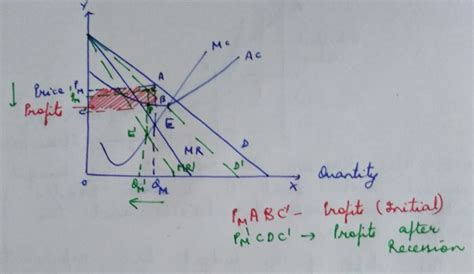 Y
MC
AC
Price PM
A
PM'
Profits
B
E'
E
MR
D
MR'
D'
O
QM'
QM
X
Quantity
PMABC' - Profit (Initial)
PM'CDC' → Profit after
Recession